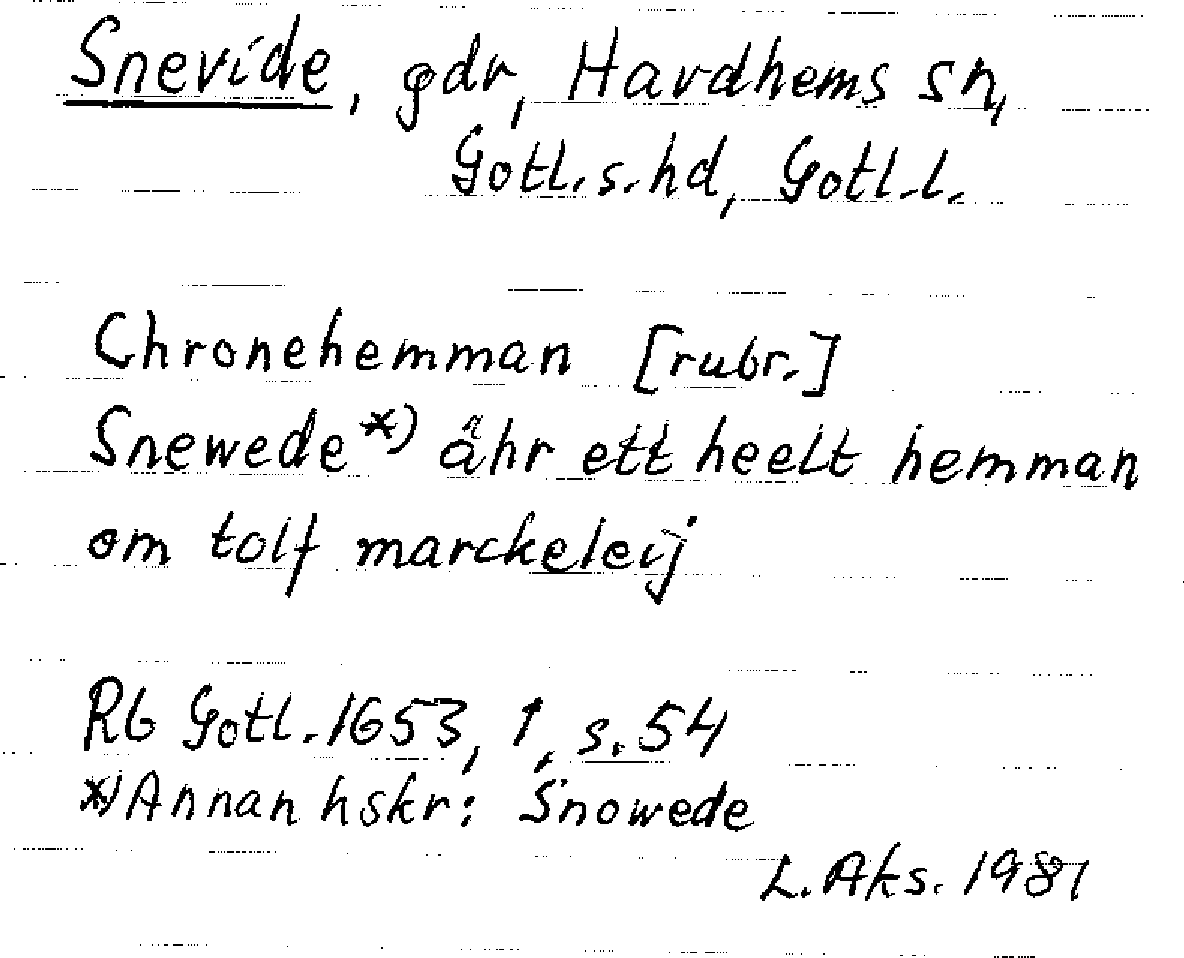 Snevide, gdr, Hardhems sn,
Gotl.s.hd, Gotl.l.
Chronehemman [rubr.]
Snewede*) åhr ett heelt hemman
om tolf marckeleij
Rb Gotl. 1653, 1, s. 54
*) Annan hskr: Snowede
L. Aks. 1981